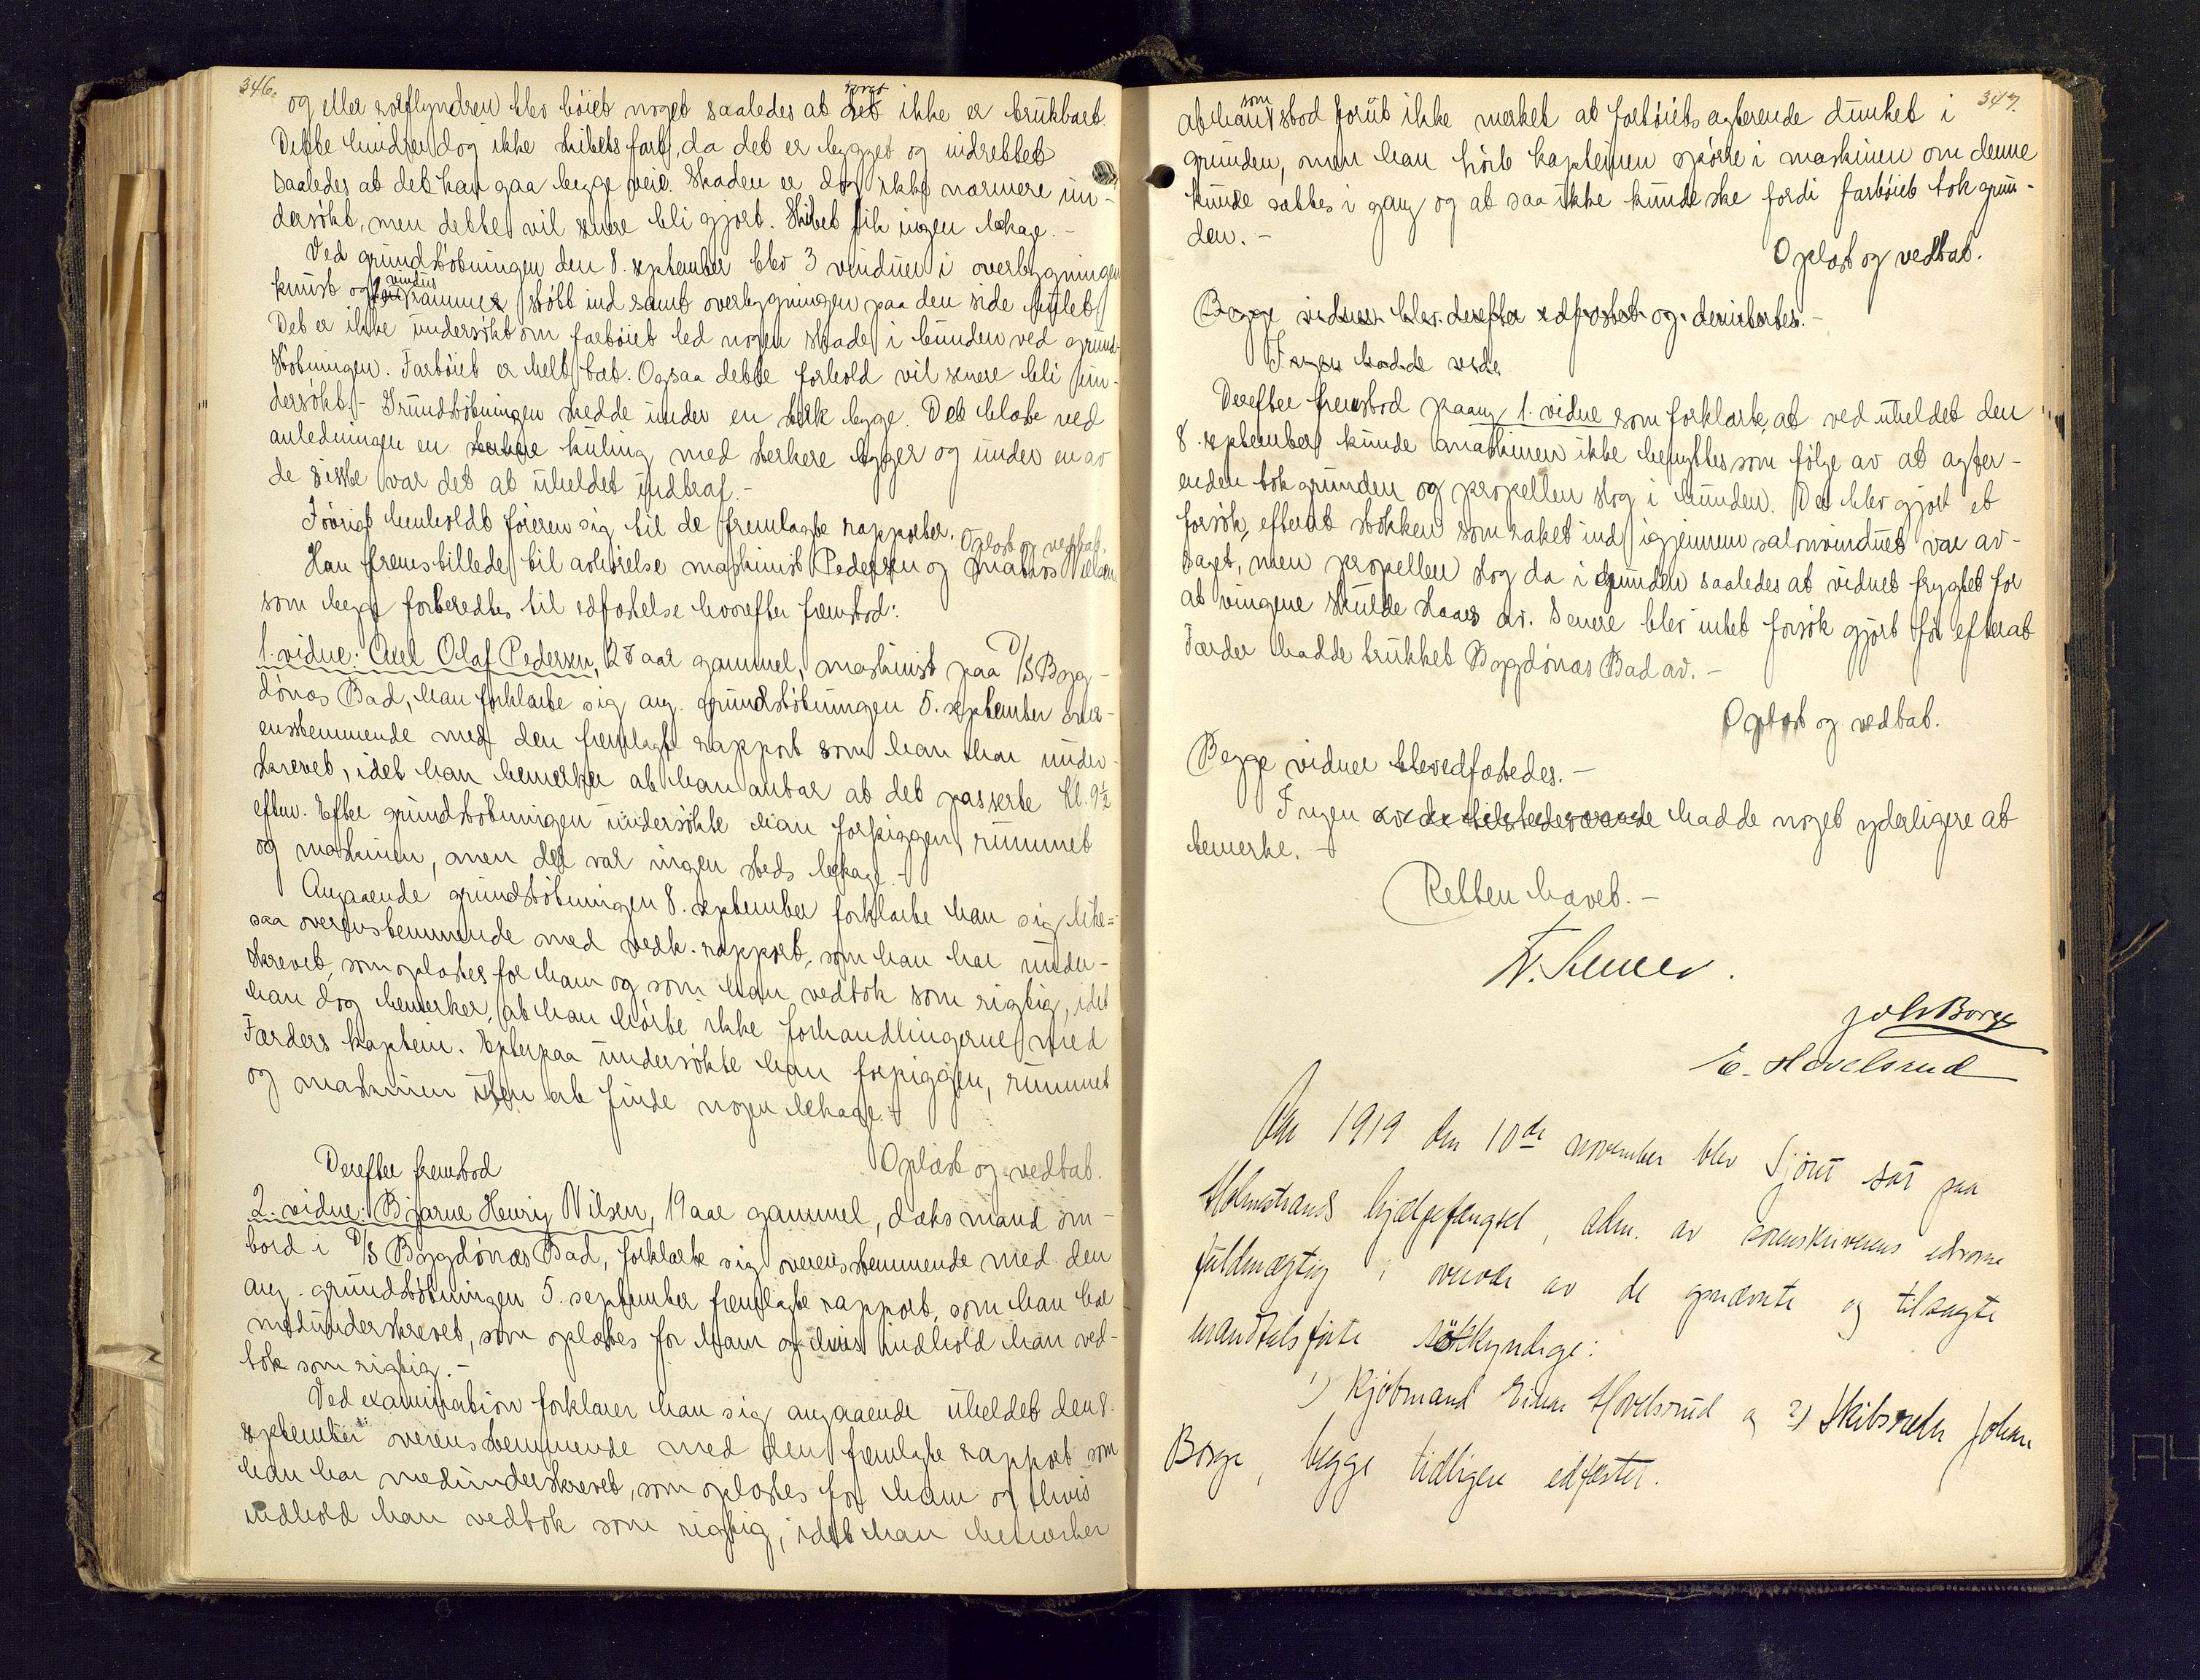 346.
og eller rorflyndren blev böiet noget saaledes at det roret ikke er brukbart.
Dette hindrer dog ikke skibets fart, da det er bygget og indrettet
saaledes at det kan gaa begge veie. Skaden er dog ikke nærmere un-
dersökt, men dette vil senere bli gjort. Skibet fik ingen lekage. -
Ved grundstötningen den 8. september blev 3 vinduer i overbygningen
knust og vindusrammer stött ind samt overbygningen paa den side bulet.
Det er ikke undersökt om fartöiet led nogen skade i bunden ved grund-
stötningen. Fartöiet er helt tæt. Ogsaa dette forhold vil senere bli un-
dersökt. - Grundstötningen skedde under en sterk bygge. Det blæste ved
anledningen en sterkere kuling med sterkere bygger og under en av
de sidste var det at uheldet indtraf. -
Forövrigt henholdt föreren sig til de fremlagte rapporter. Oplæst og vedtat.
Han fremstillede til avhörelse maskinist Pedersen og matros Nielsen
som begge forberedtes til edfæstelse hvorefter fremstod:
1. vidne: Axel Olaf Pedersen, 28 aar gammel, maskinist paa D/S Bygg-
dönæs Bad, han forklarte sig ang. grundstötningen 5. september over-
ensstemmende med den fremlagte rapport som han har under-
skrevet, idet han bemerker at han antar at det passerte kl. 9½
efterm. Efter grundstötningen undersökte han forpiggen, rummet
og maskinen, men der var ingen steds lekage. -
Angaaende grundstötningen 8. september forklarte han sig like-
saa overensstemmende med vedk. rapport, som han har under-
skrevet, som oplæstes for ham og som han vedtok som rigtig, idet
han dog bemerker, at han hörte ikke forhandlingerne med
Færders kaptein. Efterpaa undersökte han forpiggen, rummet
og maskinen uten at finde nogen lekage. -
Oplæst og vedtat.
Derefter fremstod
2. vidne: Bjarne Henry Nilsen, 19 aar gammel, dæksmand om-
bord i D/S Byggdönæs Bad, forklarte sig overensstemmende med den
ang. grundstötningen 5. september fremlagte rapport, som han har
medunderskrevet, som oplæstes for ham og hvis indhold han ved-
tok som rigtig. -
Ved examination forklarer han sig angaaende uheldet den 8.
september overensstemmende med den fremlagte rapport som
han har medunderskrevet, som oplæstes for ham og hvis
indhold han vedtok som rigtig, idet han bemerker
347.
at han som stod forut ikke merket at fartöiets agterende dunket i
grunden, men han hörte kapteinen spörre i maskinen om denne
kunde sættes i gang og at saa ikke kunde ske fordi fartöiet tok grun-
den. -
Oplæst og vedtat.
Begge vidner blev derefter edfæstet og demitertes. -
Ingen hadde vide
Derefter fremstod paany 1. vidne som forklarte, at ved uheldet den
8. september kunde maskinen ikke benyttes som fölge av at agter-
enden tok grunden og propellen slog i bunden. Der blev gjort et
forsök, efterat stokken som raket ind igjennem salonvinduet var av-
saget, men propellen slog da i grunden saaledes at vidnet frygtet for
at vingene skulde slaaes av. Senere blev intet forsök gjort för efterat
Færder hadde trukket Byggdönæs Bad av. -
Oplæst og vedtat.
Begge vidner blev edfæstedes. -
Ingen av de tilstedeværende hadde noget yderligere at
bemerke. -
Retten hævet. -
Joh Borge
E. Hovelsrud
Aar 1919 den 10de november blev Sjöret sat paa
Holmstrands hjælpefængsel, adm. av sorenskriverens edsvorne
fuldmægtig i overvær av de opnævnte og tilsagte
mandtalsförte sökyndige:
1) Kjöbmand Einar Hovelsrud og 2) Skibsreder Johan
Borge, begge tidligere edfæstet.